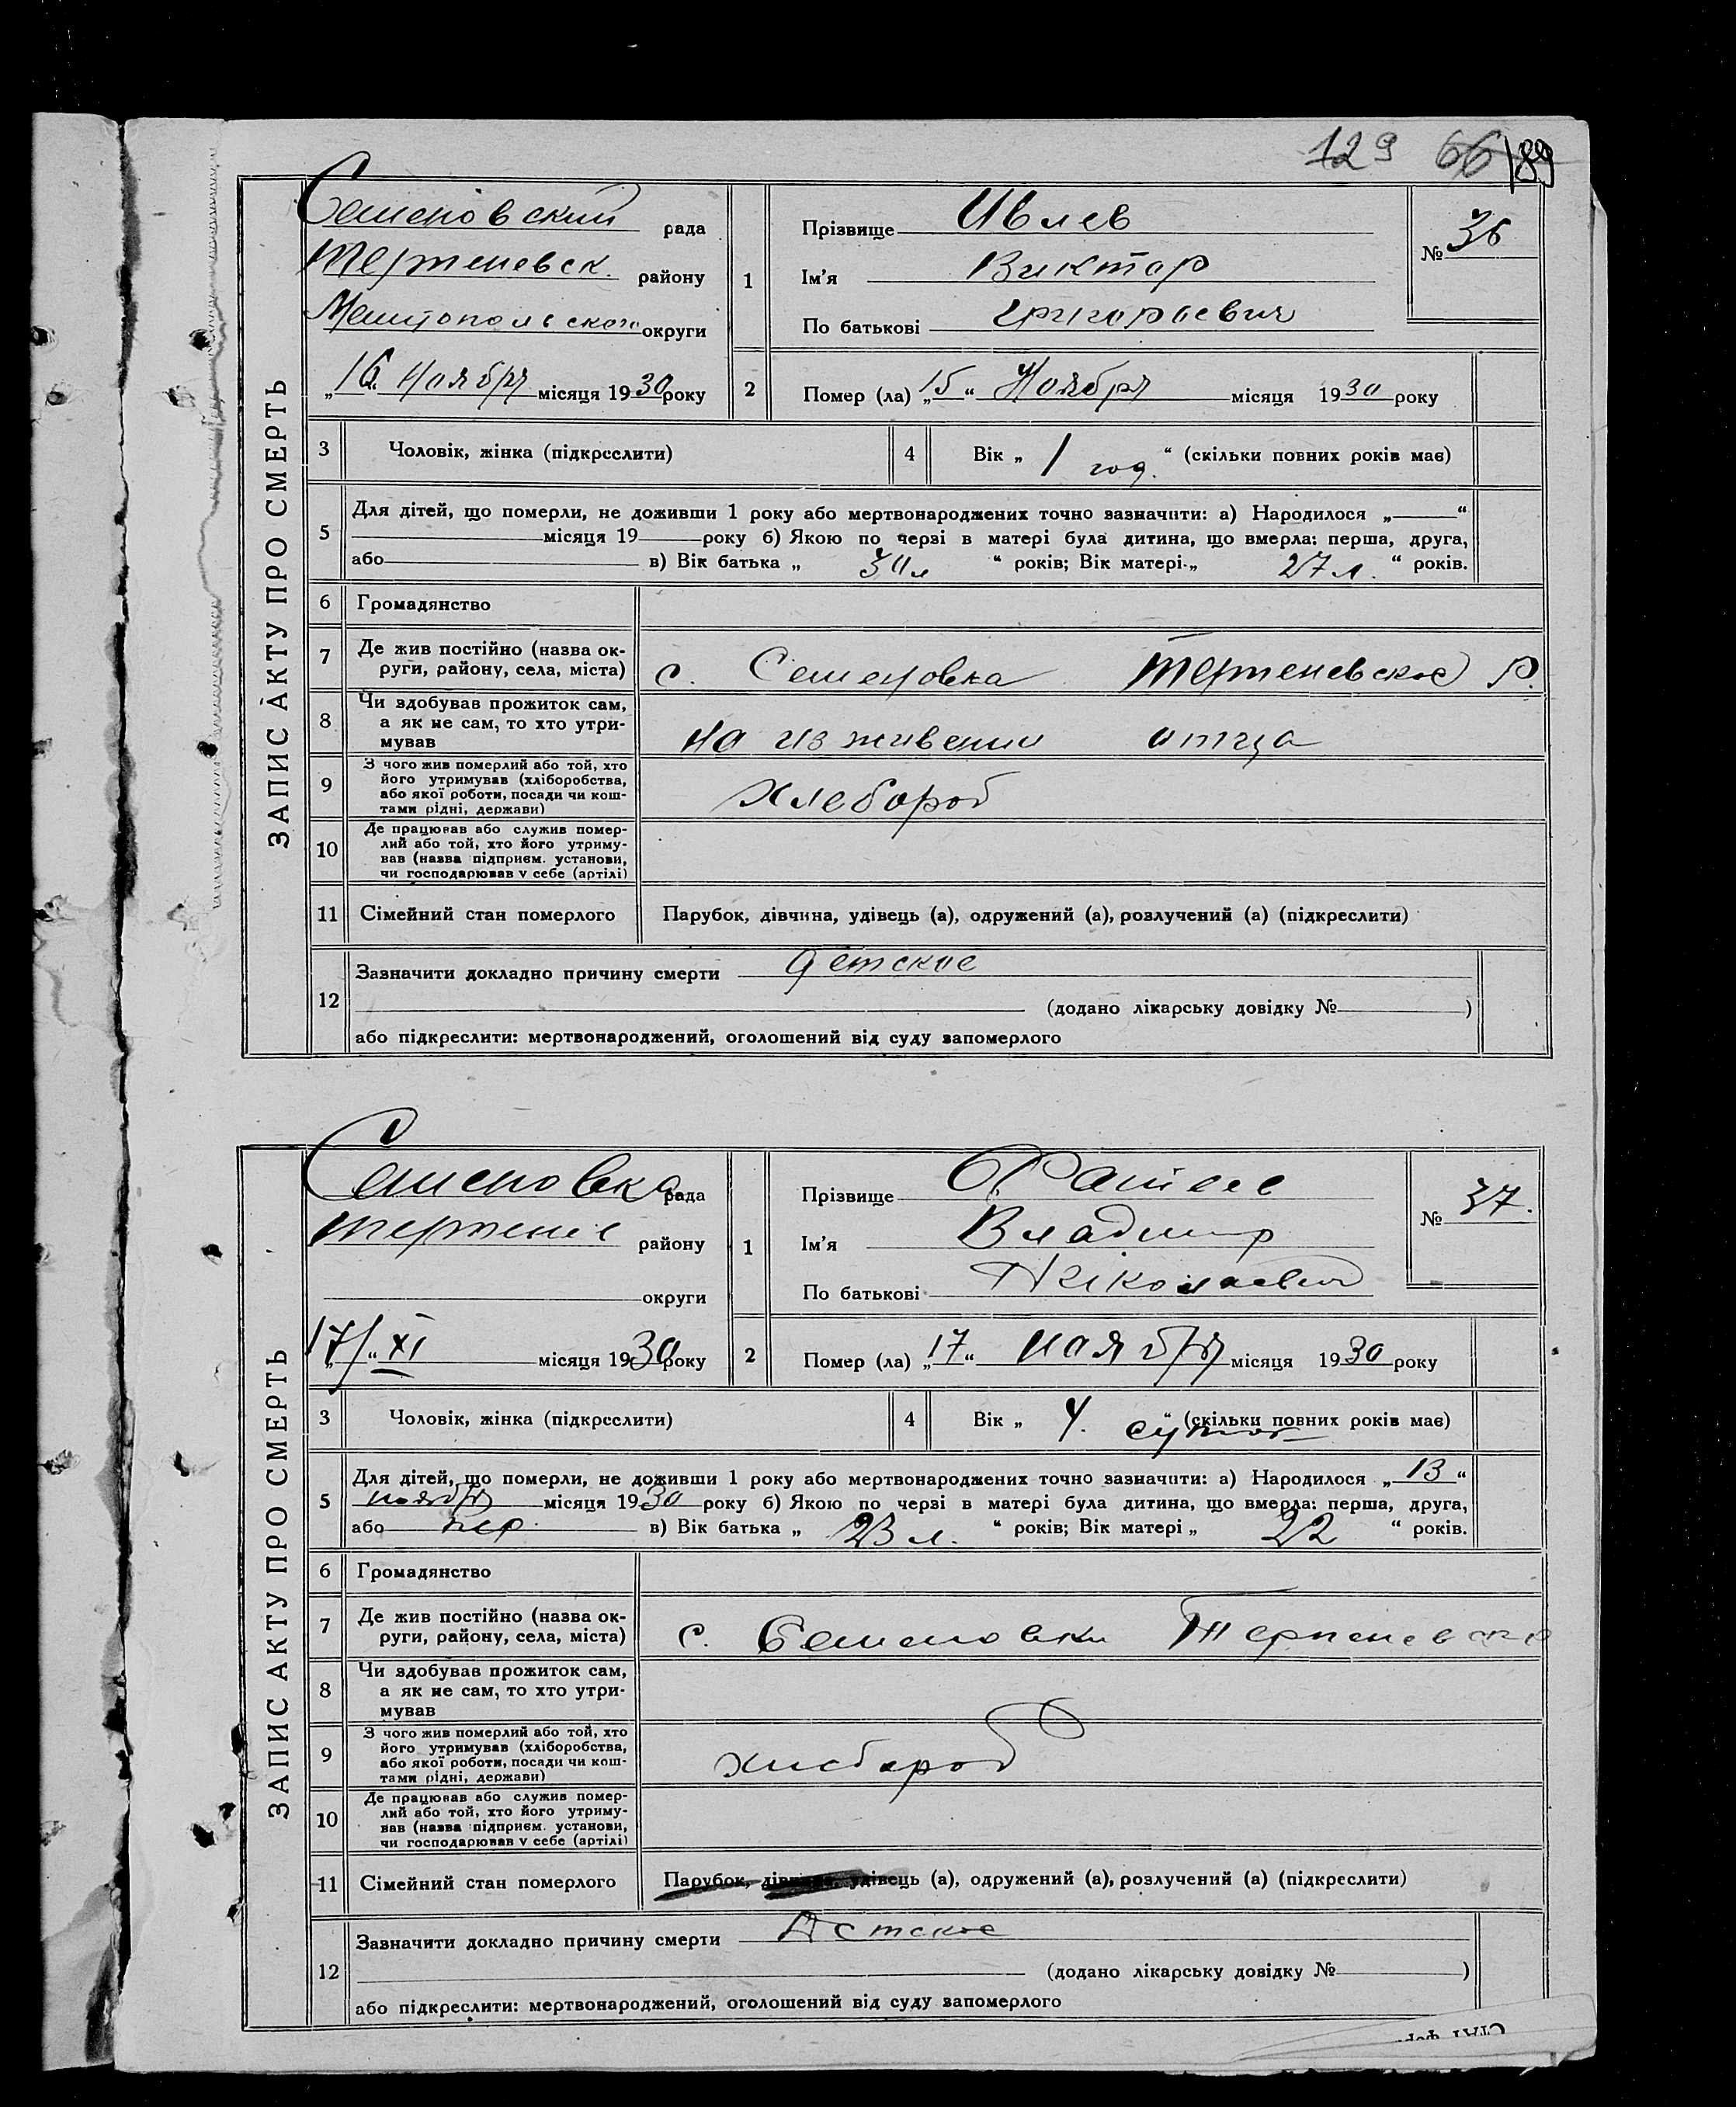 129 66 189
ЗАПИС АКТУ ПРО СМЕРТЬ
Семеновский рада
Терпеневск. району
Мелитопольского округи
„16“ Ноября місяця 1930 року
1
Прізвище Ивлев
Ім'я Виктор
По батькові Григорьевич
№ 36
2 Помер (ла) „15“ Ноября місяця 1930 року
3 Чоловік, жінка (підкреслити)
4 Вік „ 1 год. “ (скільки повних років має)
5 Для дітей, що померли, не доживши 1 року або мертвонароджених точно зазначити: а) Народилося „ “
місяця 19 року б) Якою по черзі в матері була дитина, що вмерла: перша, друга,
або в) Вік батька „ 30 л “ років; Вік матері „ 27 л. “ років.
6 Громадянство
7 Де жив постійно (назва ок-
руги, району, села, міста) с. Семеновка Терпеневское р.
8 Чи здобував прожиток сам,
а як не сам, то хто утри-
мував на изживении отца
9 З чого жив померлий або той, хто
його утримував (хліборобства,
або якої роботи, посади чи кош-
тами рідні, держави) Хлебороб
10 Де працював або служив помер-
лий або той, хто його утриму-
вав (назва підприєм. установи,
чи господарював у себе (артілі)
11 Сімейний стан померлого Парубок, дівчина, удівець (а), одружений (а), розлучений (а) (підкреслити)
12 Зазначити докладно причину смерти детское
(додано лікарську довідку № )
або підкреслити: мертвонароджений, оголошений від суду запомерлого
ЗАПИС АКТУ ПРО СМЕРТЬ
Семеновка рада
Терпение району
округи
„17“ XI місяця 1930 року
1
Прізвище
Ім'я Владимир
По батькові Николаевич
№ 37.
2 Помер (ла) „17“ ноября місяця 1930 року
3 Чоловік, жінка (підкреслити)
4 Вік „ 4. суток “ (скільки повних років має)
5 Для дітей, що померли, не доживши 1 року або мертвонароджених точно зазначити: а) Народилося „13“
ноября місяця 1930 року б) Якою по черзі в матері була дитина, що вмерла: перша, друга,
або пер. в) Вік батька „ 23 л. “ років; Вік матері „ 22 “ років.
6 Громадянство
7 Де жив постійно (назва ок-
руги, району, села, міста) с. Семеновки Терпеневско
8 Чи здобував прожиток сам,
а як не сам, то хто утри-
мував
9 З чого жив померлий або той, хто
його утримував (хліборобства,
або якої роботи, посади чи кош-
тами рідні, держави) хлебороб
10 Де працював або служив помер-
лий або той, хто його утриму-
вав (назва підприєм. установи,
чи господарював у себе (артілі)
11 Сімейний стан померлого Парубок, дівчина, удівець (а), одружений (а), розлучений (а) (підкреслити)
12 Зазначити докладно причину смерти Детское
(додано лікарську довідку № )
або підкреслити: мертвонароджений, оголошений від суду запомерлого